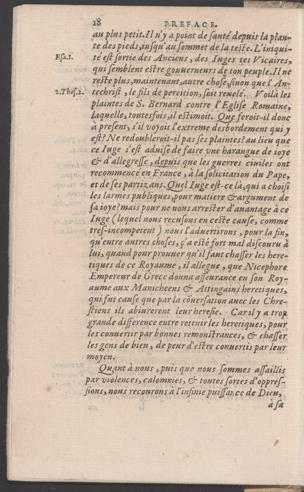 28
PREFACE.
au plus petit. Il n'y a point de santé depuis la plan-
te des pieds, jusqu'au sommet de la teste. L'iniqui-
Esa.1.
té est sortie des Anciens, des Iuges tes Vicaires,
qui semblent estre gouverneurs de ton peuple. Il ne
reste plus, maintenant, autre chose, sinon que l'An-
2.Thes.2.
techrist, le fils de perdition, soit revelé... Voilà les
plaintes de S. Bernard contre l'Eglise Romaine,
laquelle, toutesfois, il estimoit. Que feroit-il donc
à present, s'il voyoit l'extreme desbordement qui y
est? Ne redoubleroit-il pas ses plaintes? au lieu que
ce Iuge s'est aduisé de faire vne harangue de ioye
& d'allegresse, depuis que les guerres ciuiles ont
recommencé en France, à la solicitation du Pape,
et de ses partizans. Quel Iuge est-ce là, qui a choisi
les larmes publiques, pour matiere & argument de
sa ioye? mais pour ne nous arrester d'auantage à ce
Iuge (lequel nous recusons en ceste cause, comme
tres-incompetent) nous l'aduertirons, pour la fin,
qu'entre autres choses, ç'a esté fort mal discouru à
lui, quand pour prouuer qu'il faut chasser les here-
tiques de ce Royaume, il allegue, que Nicephore
Empereur de Grece donna asseurance en son Roy-
aume aux Manicheens & Attingains heretiques,
qui fut cause que par la cõuersation auec les Chre-
stiens ils abiurerent leur heresie. Car il y a trop
grande difference entre retenir les heretiques, pour
les conuertir par bonnes remonstrances, & chasser
les gens de bien, de peur d'estre conuertis par leur
moyen.
Quant à nous, puis que nous sommes assaillis
par violences, calomnies, & toutes sortes d'oppres-
sions, nous recourons à l'infinie puissance de Dieu,
à sa